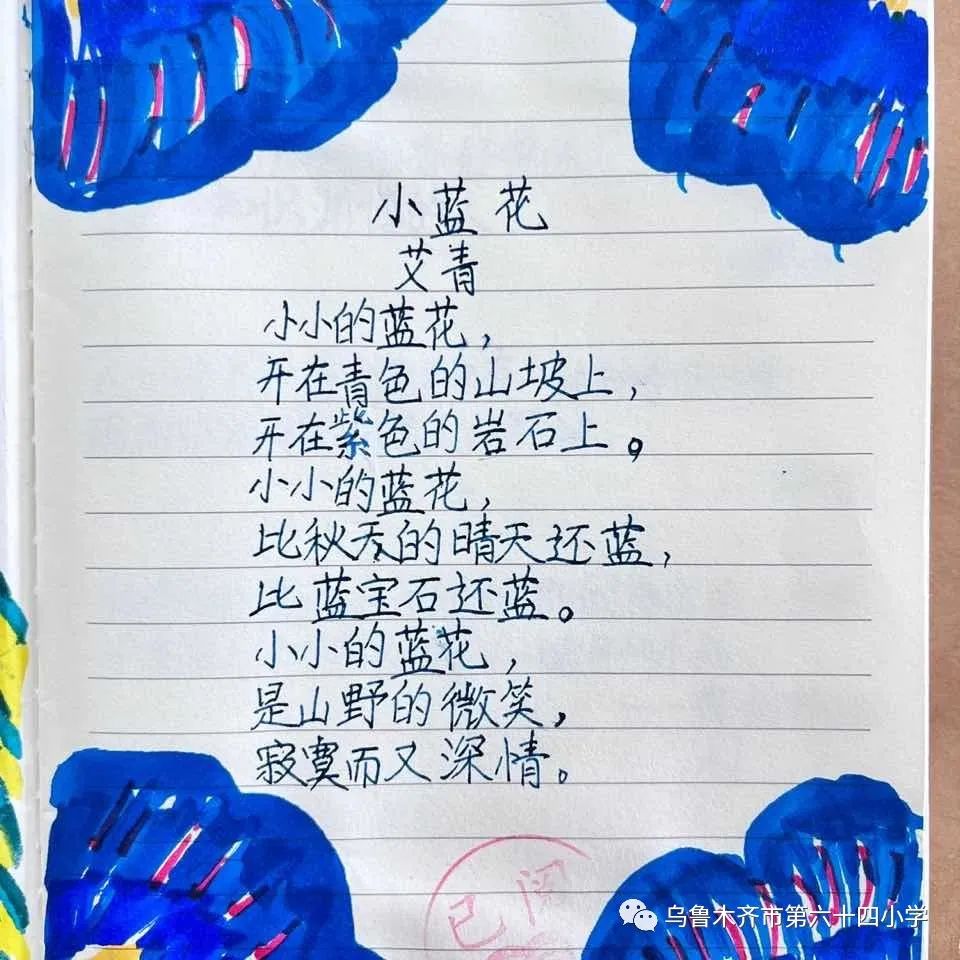 小蓝花
艾青
小小的蓝花，
开在青色的山坡上，
开在紫色的岩石上。
小小的蓝花，
比秋天的晴天还蓝，
比蓝宝石还蓝。
小小的蓝花，
是山野的微笑，
寂寞而又深情。
已阅
乌鲁木齐市第六十四小学